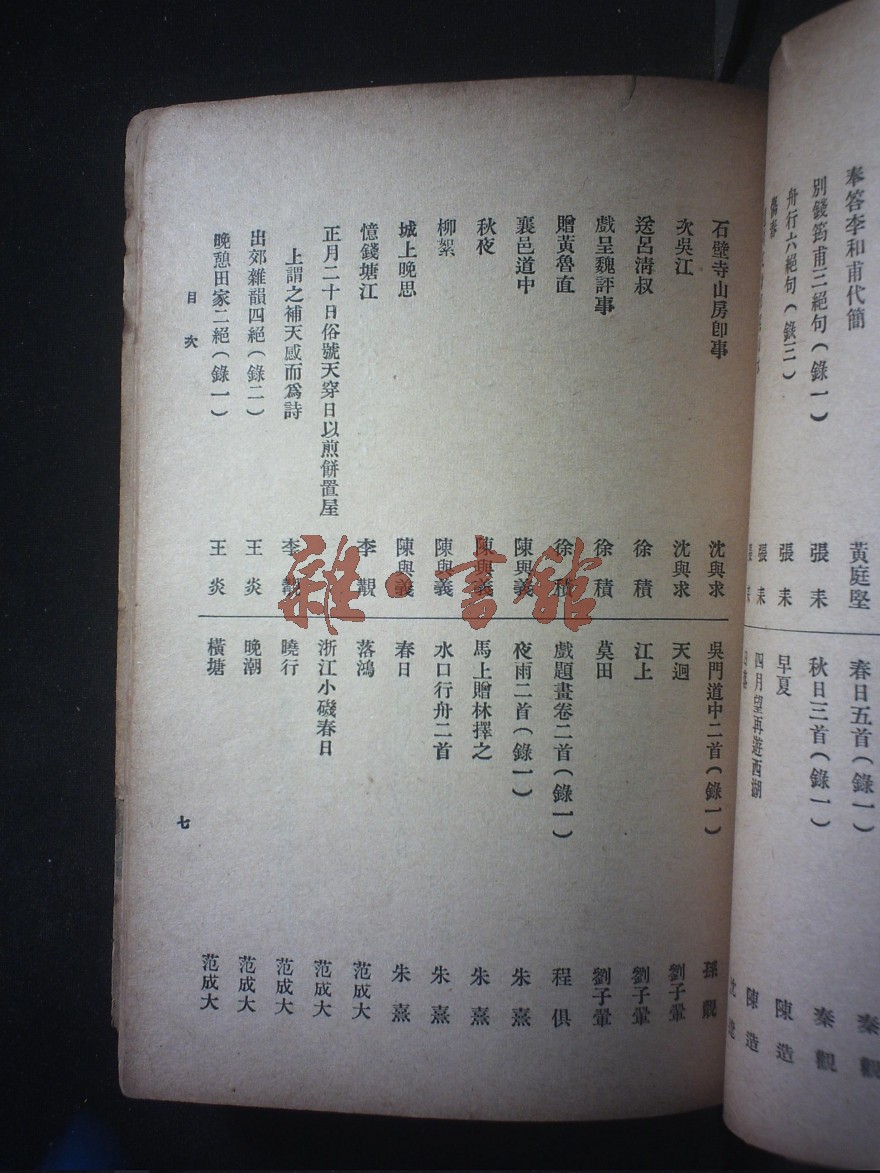 奉答李和甫代簡 黃庭堅
別錢筠甫三絕句(錄一) 張耒
舟行六絕句(錄三) 張耒
張耒
春日五首(錄一) 秦觀
秋日三首(錄一) 秦觀
早夏 陳造
四月望再遊西湖 陳造
石壁寺山房卽事 沈與求
次吳江 沈與求
送呂淸叔 徐積
戲呈魏評事 徐積
贈黃魯直 徐積
襄邑道中 陳與義
秋夜 陳與義
柳絮 陳與義
城上晚思 陳與義
憶錢塘江 李覯
正月二十日俗號天穿日以煎餅置屋
上謂之補天感而爲詩 李覯
出郊雜韻四絕(錄二) 王炎
晚憩田家二絕(錄一) 王炎
吳門道中二首(錄一) 孫覿
天迴 劉子翬
江上 劉子翬
莫田 劉子翬
戲題畫卷二首(錄一) 程俱
夜雨二首(錄一) 朱熹
馬上贈林擇之 朱熹
水口行舟二首 朱熹
春日 朱熹
落鴻 范成大
浙江小磯春日 范成大
曉行 范成大
晚潮 范成大
橫塘 范成大
目次
七
雜·書館